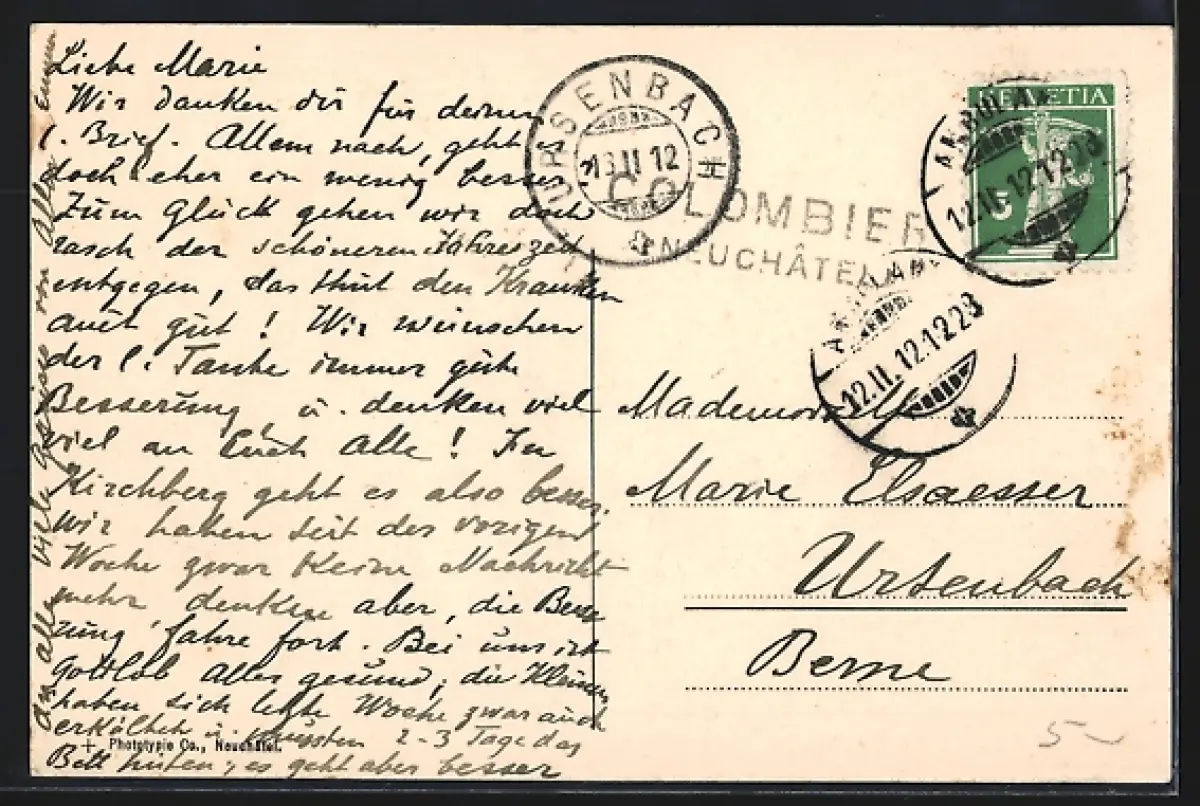 Liebe Marie
Wir danken dir für deinen
l. Brief. Allem nach, geht es
doch eher ein wenig besser.
Zum Glück gehen wir doch
rasch der schöneren Jahreszeit
entgegen, das thut den Kranken
auch gut! Wir wünschen
der l. Tante immer gute
Besserung u. denken viel
viel an Euch alle! In
Kirchberg geht es also besser.
Wir haben seit der vorigen
Woche zwar keine Nachricht
mehr, denken aber, die Besse
rung fahre fort. Bei uns ist
gottlob alles gesund; die Kleinen
haben sich letzte Woche zwar auch
erkältet u. mussten 2-3 Tage das
Bett hüten; es geht aber besser
an alle viele Grüsse von Allen
Phototypie Co., Neuchâtel.
URSENBACH
13.II.12
COLOMBIER
NEUCHÂTEL
HELVETIA
5
AMBULANT
12.II.12.1223
AMBULANT
12.II.12.1223
Mademoiselle
Marie Elsaesser
Ursenbach
Berne
5-